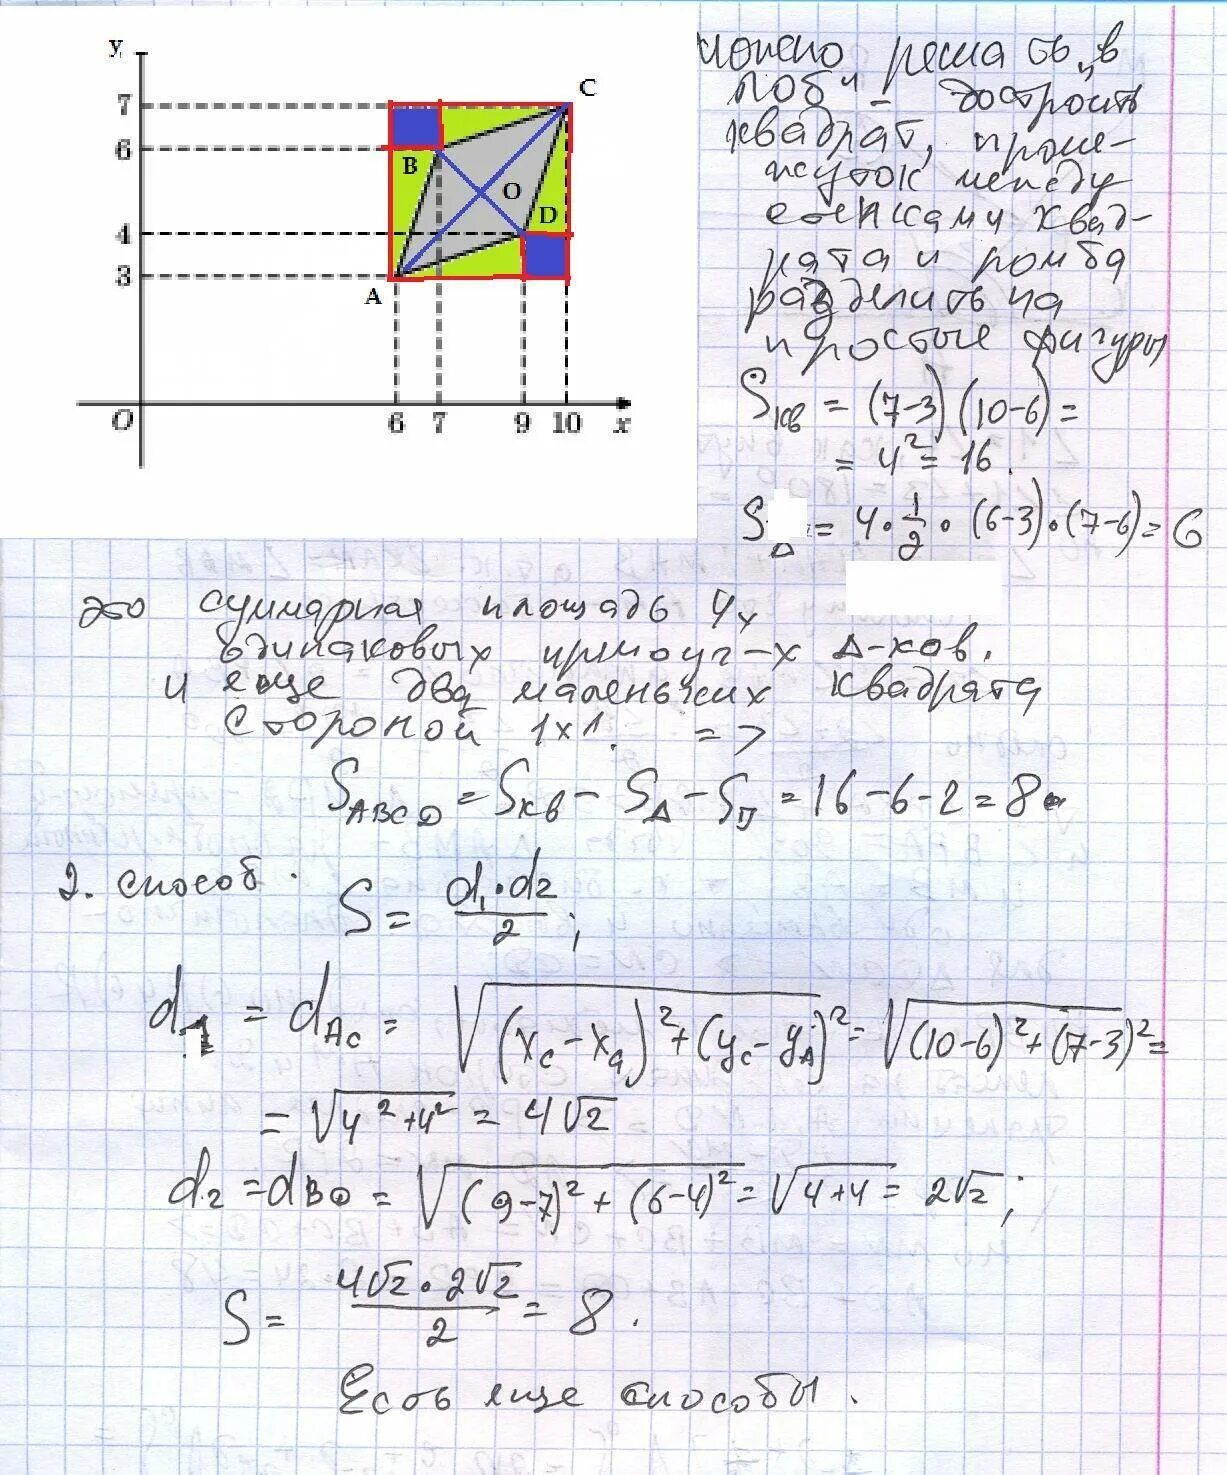 y
7
6
4
3
O
6 7 9 10 x
A
B
C
D
O
можно решать „в
лоб" - достроить
квадрат, проме-
жуток между
стенками квад-
рата и ромба
разделить на
простые фигуры
Sкв = (7-3)(10-6) =
= 4² = 16.
S△ = 4·1/2·(6-3)·(7-6) = 6
это суммарная площадь 4х
одинаковых прямоуг-х Δ-ков.
и еще два маленьких квадрата
стороной 1x1. =>
SABCD = Sкв - SΔ - Sп = 16-6-2 = 8.
2. способ.
S = d₁·d₂/2;
d₁ = dAC = √(xc-xa)²+(yc-yA)² = √(10-6)²+(7-3)² =
= √4²+4² = 4√2
d₂ = dBD = √(9-7)²+(6-4)² = √4+4 = 2√2;
S = 4√2·2√2/2 = 8.
Есть еще способы.